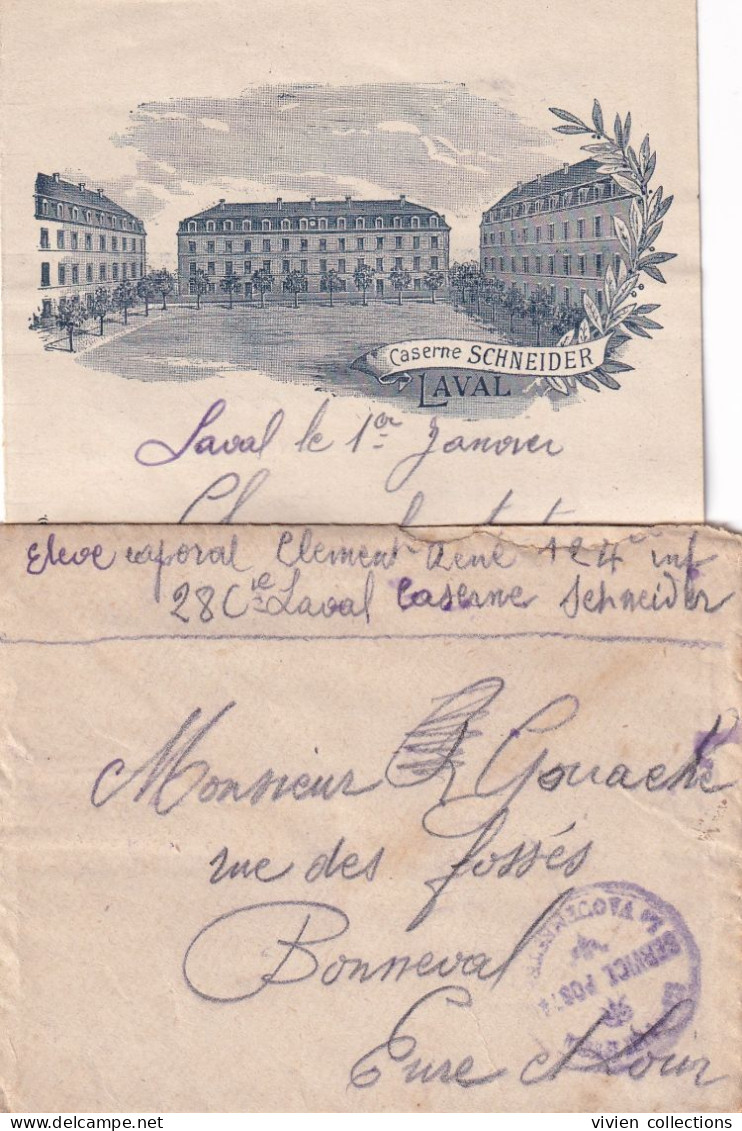 Caserne SCHNEIDER
LAVAL
Laval le 1er Janvier
Eleve caporal Clement René 124e inf
28 Cie Laval Caserne Schneider
Monsieur Gouache
rue des fossés
Bonneval
Eure et Loir
SERVICE POSTAL
vivien collections